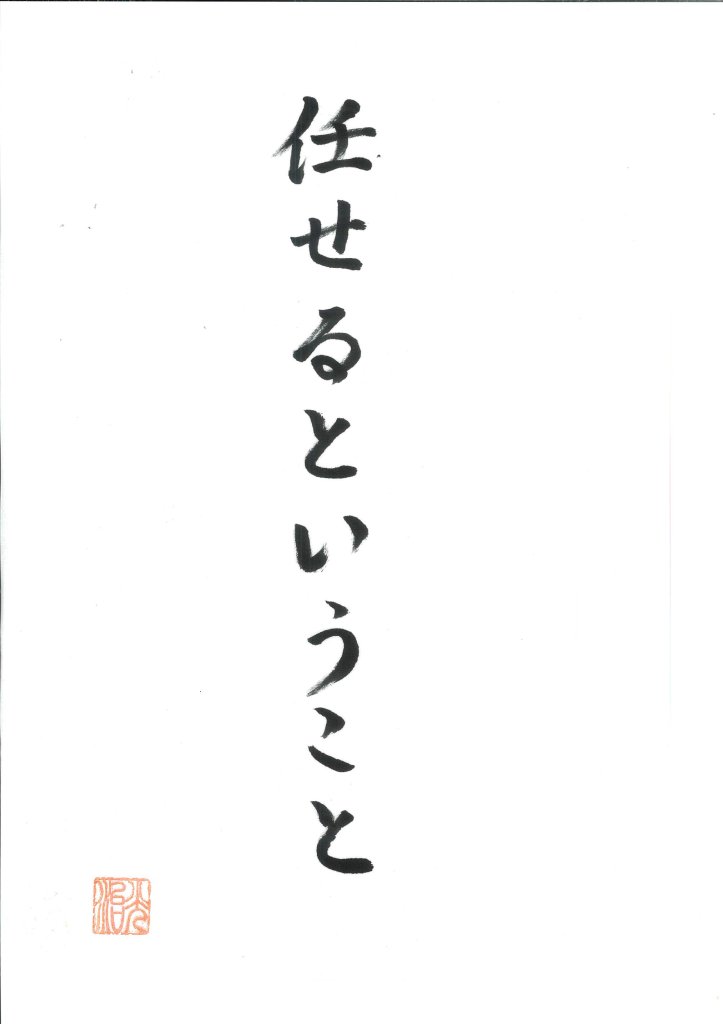 任せるということ